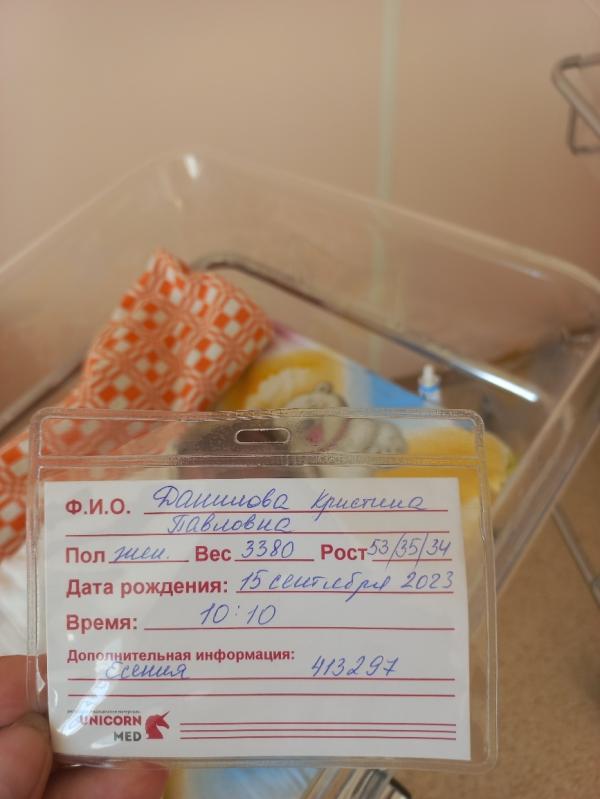 Ф.И.О. Данилова Кристина
Павловна
Пол жен. Вес 3380 Рост 53/35/34
Дата рождения: 15 сентября 2023
Время: 10:10
Дополнительная информация:
Есения 413297
UNICORN
MED